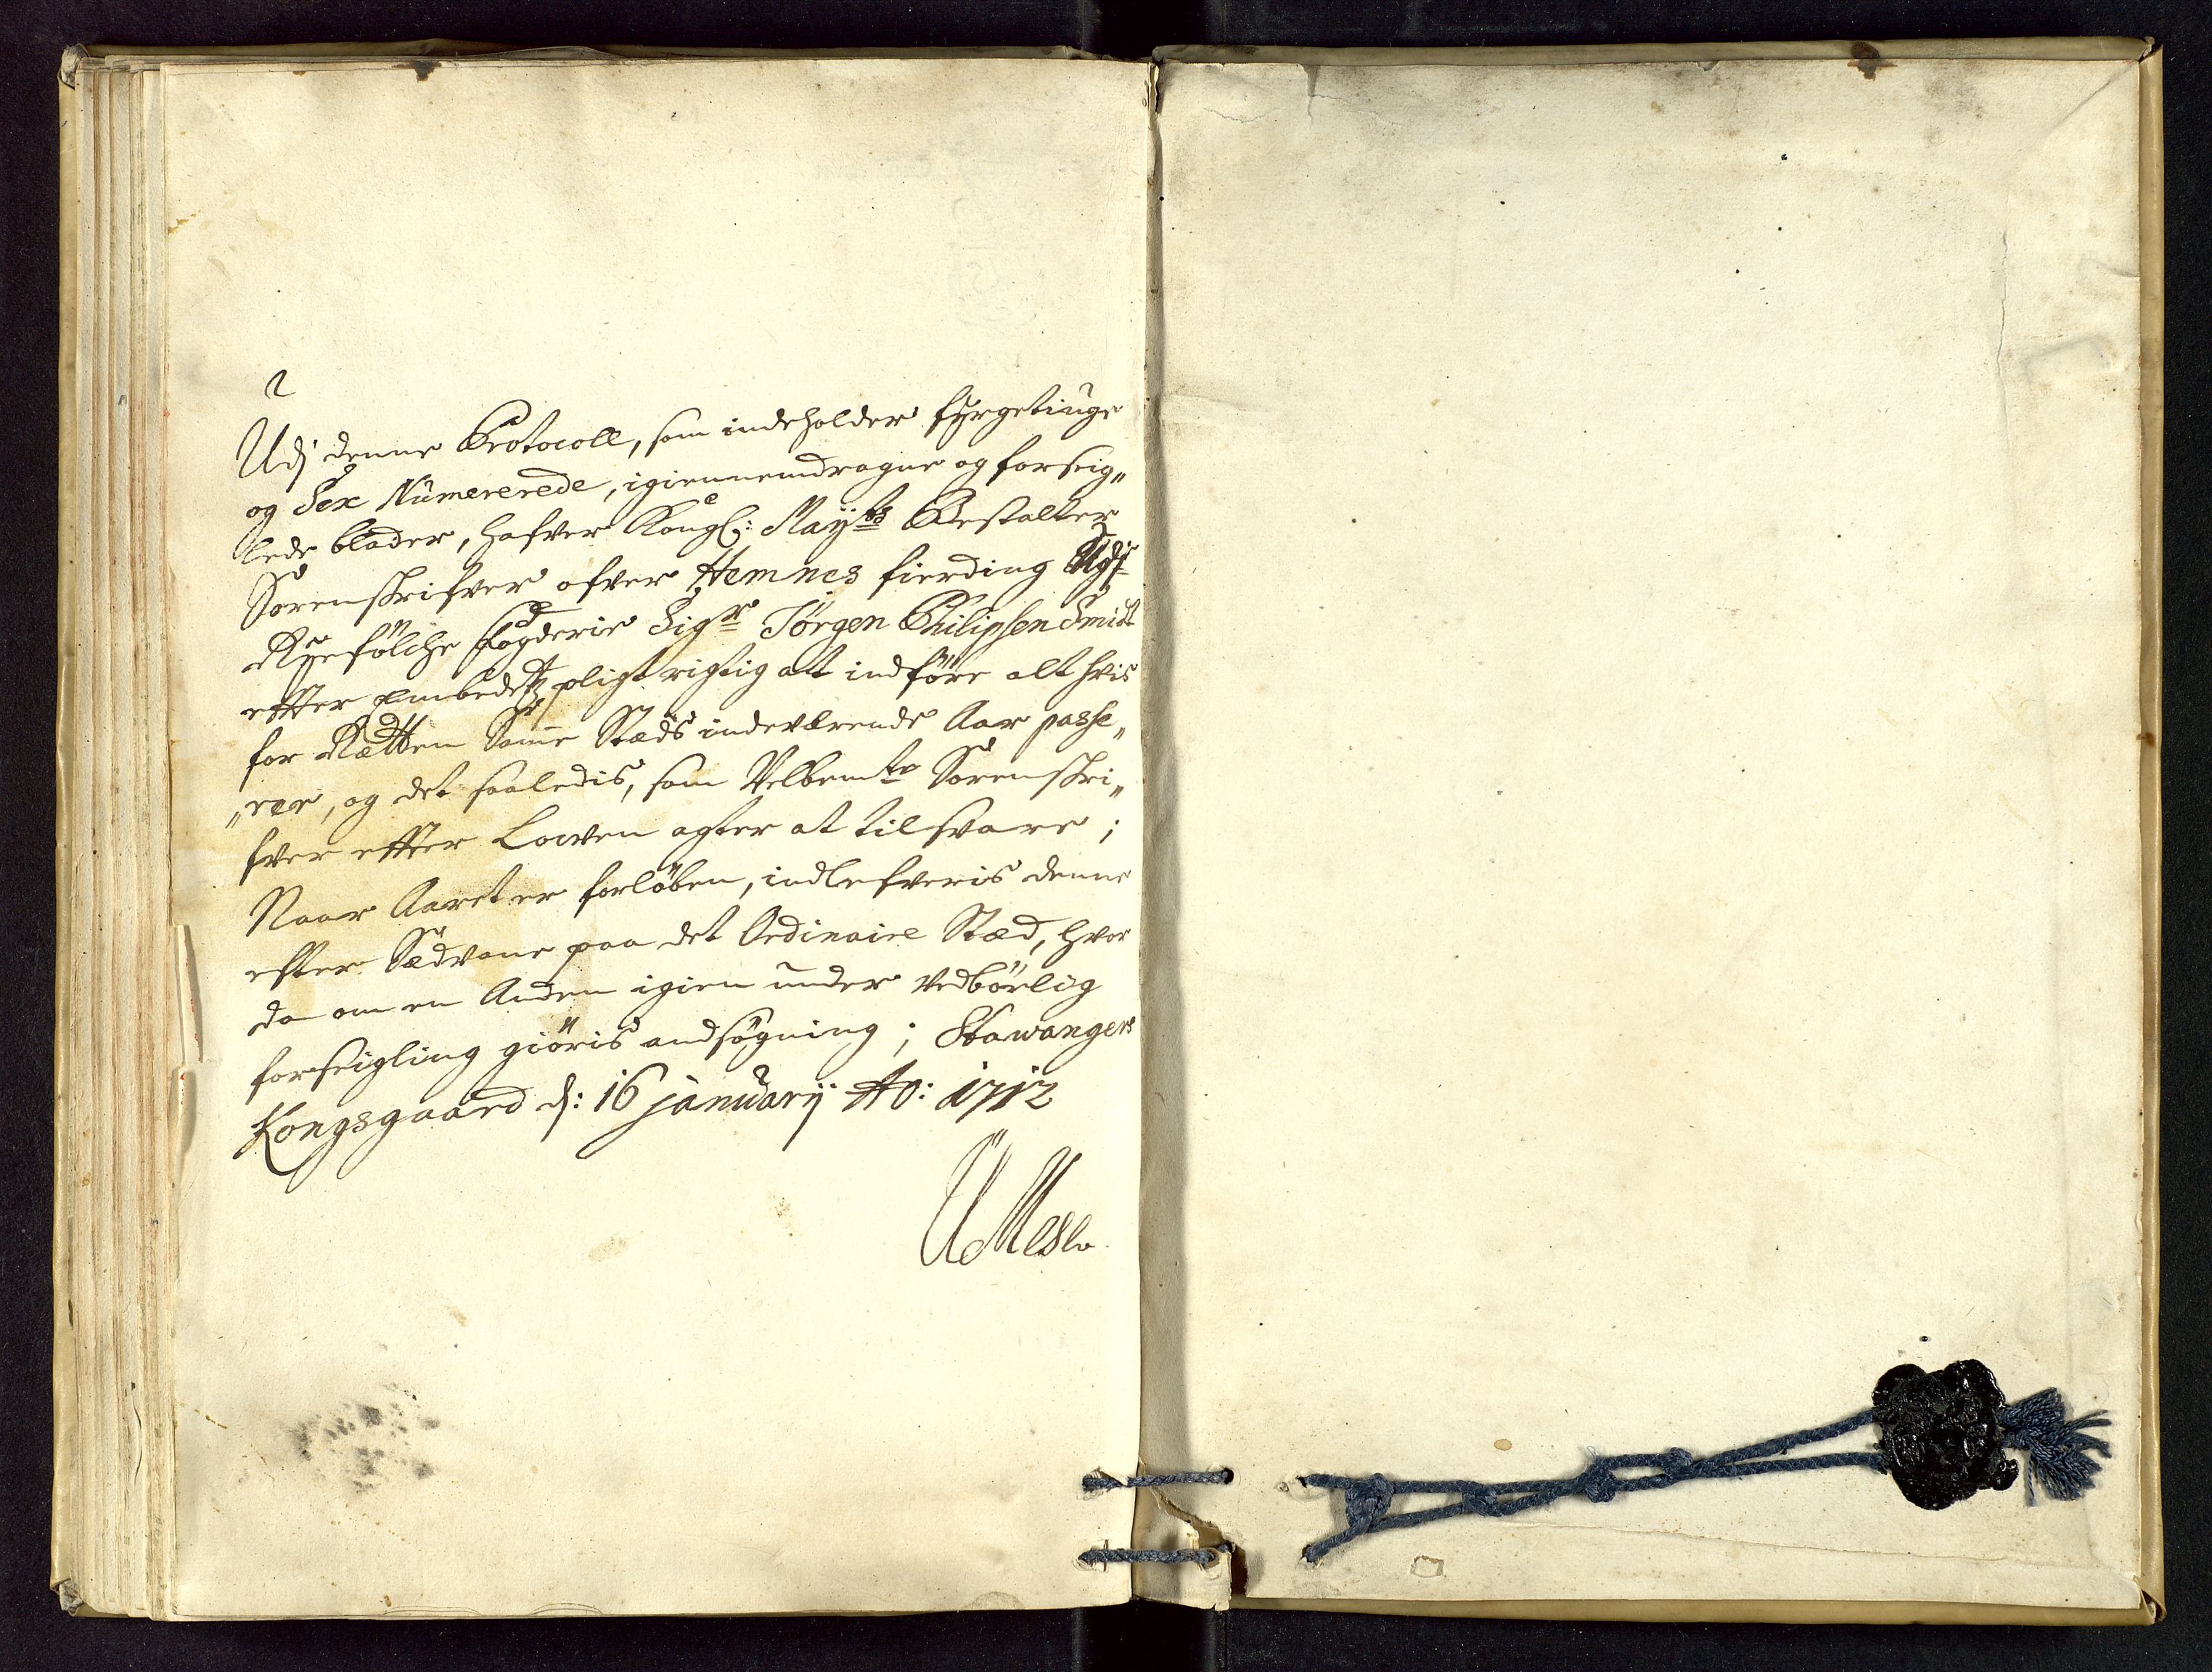 Udj denne Protocoll, som indeholder fyrgetiuge
og Sex Nümererede, igiennemdragne og forseig„
lede blader, hafver Kongl: Maÿts Bestalter
Sorenskrifver ofver Hemnes fierding Udj
Ryefölche fogderie Sigr Jörgen Philipsen Smidt
effter Embedetz pligt rigtig att indföre alt hvis
for Rætten Samme Stæds indeværende Aar passe„
„rer, og det saaledis, som Velbemte Sorenskri„
fver effter Lowen agter at tilsvare;
Naar Aaret er forlöben, indlefveris denne
efter Sædvane paa det Ordinaire Stæd, hvor
da om en Anden igien under vedbörlig
forseigling giöris andsögning; Stawangers
Kongsgaard d: 16 januarÿ Ao: 1712